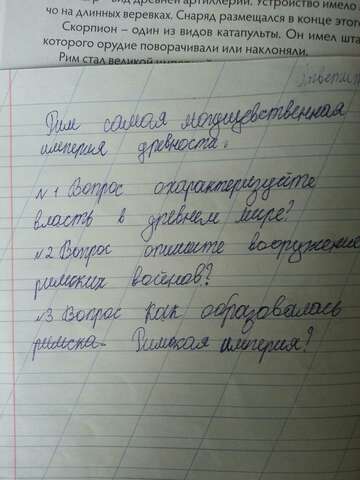 вид древней артиллерии. Устройство имело
чо на длинных веревках. Снаряд размещался в конце этог
Скорпион – один из видов катапульты. Он имел шта
которого орудие поворачивали или наклоняли.
Рим стал великой
Рим самая могущевственная
империя древноста.
№1 Вопрос охарактеризуйте
власть в древнем мире?
№2 Вопрос опишите вооружение
римских воёнов?
№3 Вопрос как образовалась
римска- Римская империя?